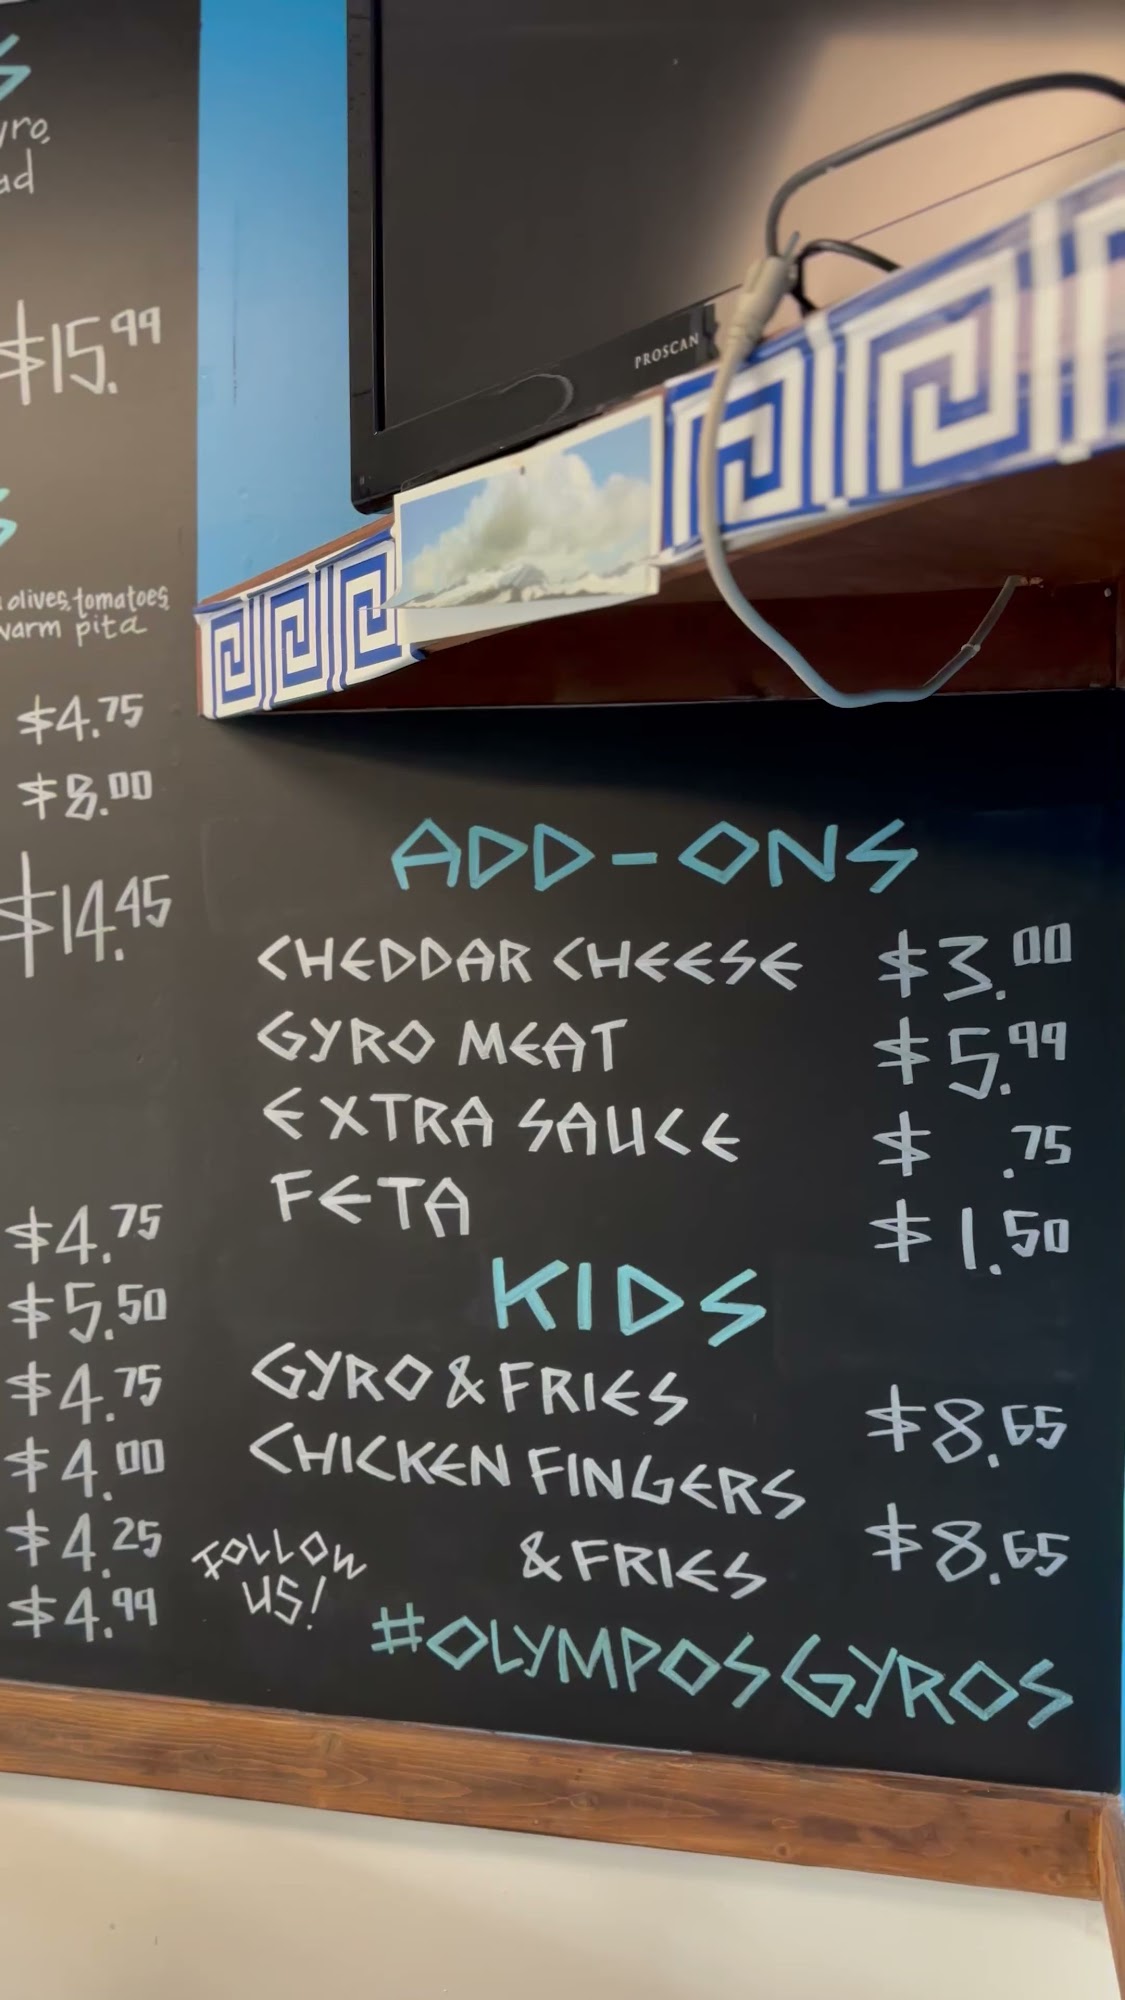 yro,
ad
$15.99
olives, tomatoes,
warm pita
$4.75
$8.00
$14.45
$4.75
$5.50
$4.75
$4.00
$4.25
$4.99
PROSCAN
ADD-ONS
CHEDDAR CHEESE $3.00
GYRO MEAT $5.99
EXTRA SAUCE $ .75
FETA $1.50
KIDS
GYRO & FRIES $8.65
CHICKEN FINGERS
& FRIES $8.65
FOLLOW
US!
#OLYMPOSGYROS